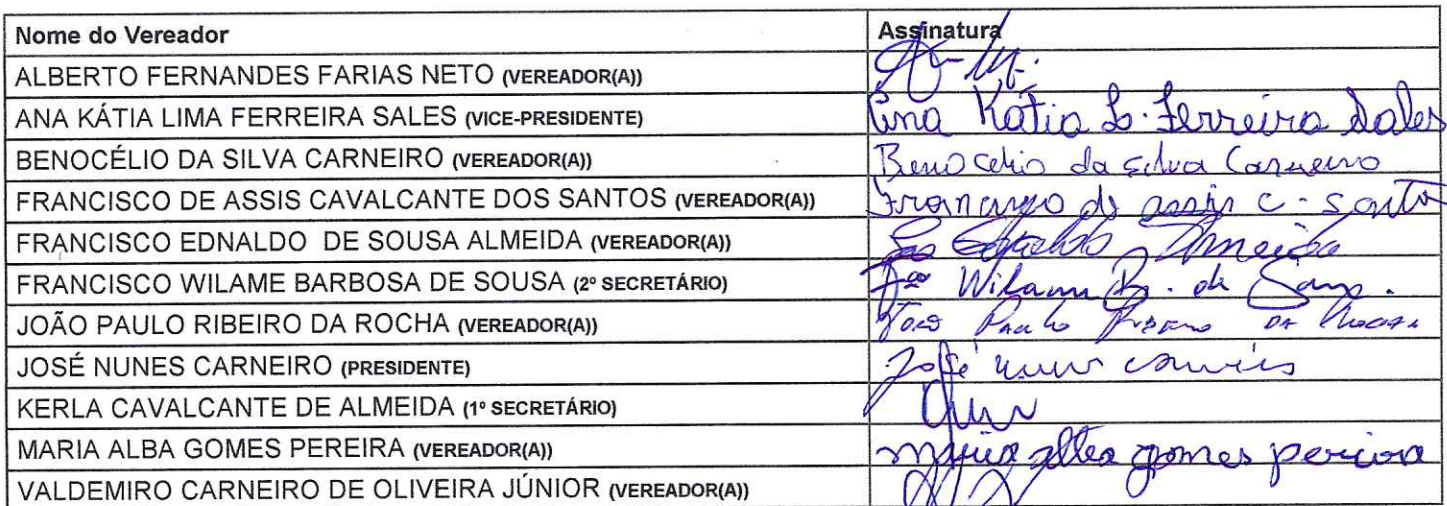 Nome do Vereador Assinatura
ALBERTO FERNANDES FARIAS NETO (VEREADOR(A))
ANA KÁTIA LIMA FERREIRA SALES (VICE-PRESIDENTE) Ana Kátia L. Ferreira Sales
BENOCÉLIO DA SILVA CARNEIRO (VEREADOR(A)) Benocelio da silva Carneiro
FRANCISCO DE ASSIS CAVALCANTE DOS SANTOS (VEREADOR(A)) Francisco de assis c. santos
FRANCISCO EDNALDO DE SOUSA ALMEIDA (VEREADOR(A)) Ednaldo Almeida
FRANCISCO WILAME BARBOSA DE SOUSA (2º SECRETÁRIO) Fco Wilame B. de Sousa.
JOÃO PAULO RIBEIRO DA ROCHA (VEREADOR(A)) João Paulo Ribeiro da Rocha
JOSÉ NUNES CARNEIRO (PRESIDENTE) José nunes carneiro
KERLA CAVALCANTE DE ALMEIDA (1º SECRETÁRIO)
MARIA ALBA GOMES PEREIRA (VEREADOR(A)) maria alba gomes pereira
VALDEMIRO CARNEIRO DE OLIVEIRA JÚNIOR (VEREADOR(A))